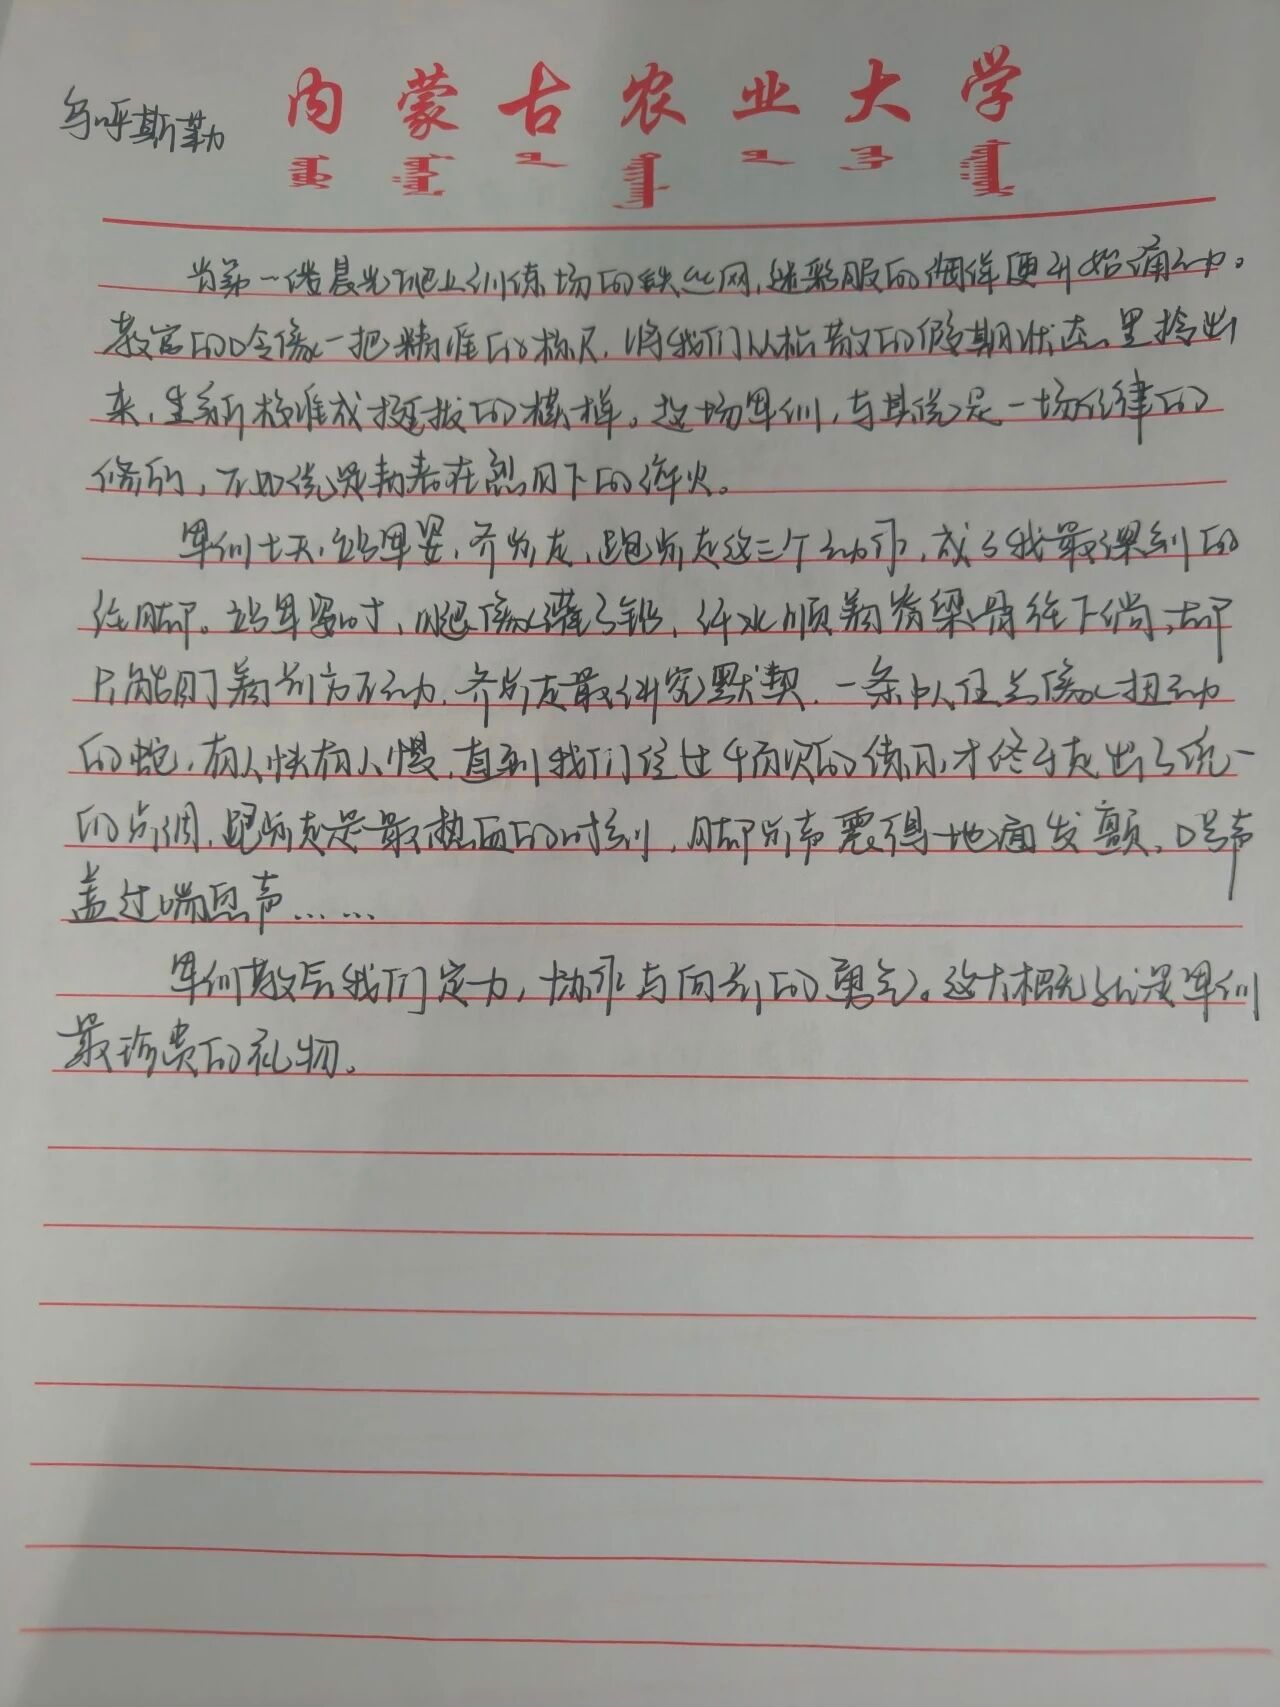 内蒙古农业大学
乌呼斯勒
当第一缕晨光爬上训练场的铁丝网，迷彩服的海洋便开始涌动。
教官的口令像一把精准的标尺，将我们从松散的假期状态里拎出
来，重新校准成挺拔的模样。这场军训，与其说是一场纪律的
修行，不如说是青春在烈日下的淬火。
军训七天，站军姿，齐步走，跑步走这三个动作，成了我最深刻的
注脚。站军姿时，腿像灌了铅，汗水顺着脊梁骨往下淌，却
只能盯着前方不动，齐步走最讲究默契，一条队伍总像扭动
的蛇，有人快有人慢，直到我们经过千百次的练习，才终于走出了统一
的步调，跑步走是最热血的时刻，脚步声震得地面发颤，口号声
盖过喘息声……
军训教会我们定力，协作与向前的勇气。这大概就是军训
最珍贵的礼物。